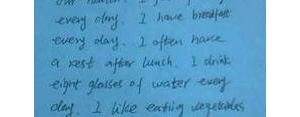 every day. I have breakfast
every day. I often have
a rest after lunch. I drink
eight glasses of water every
day. I like eating vegetables